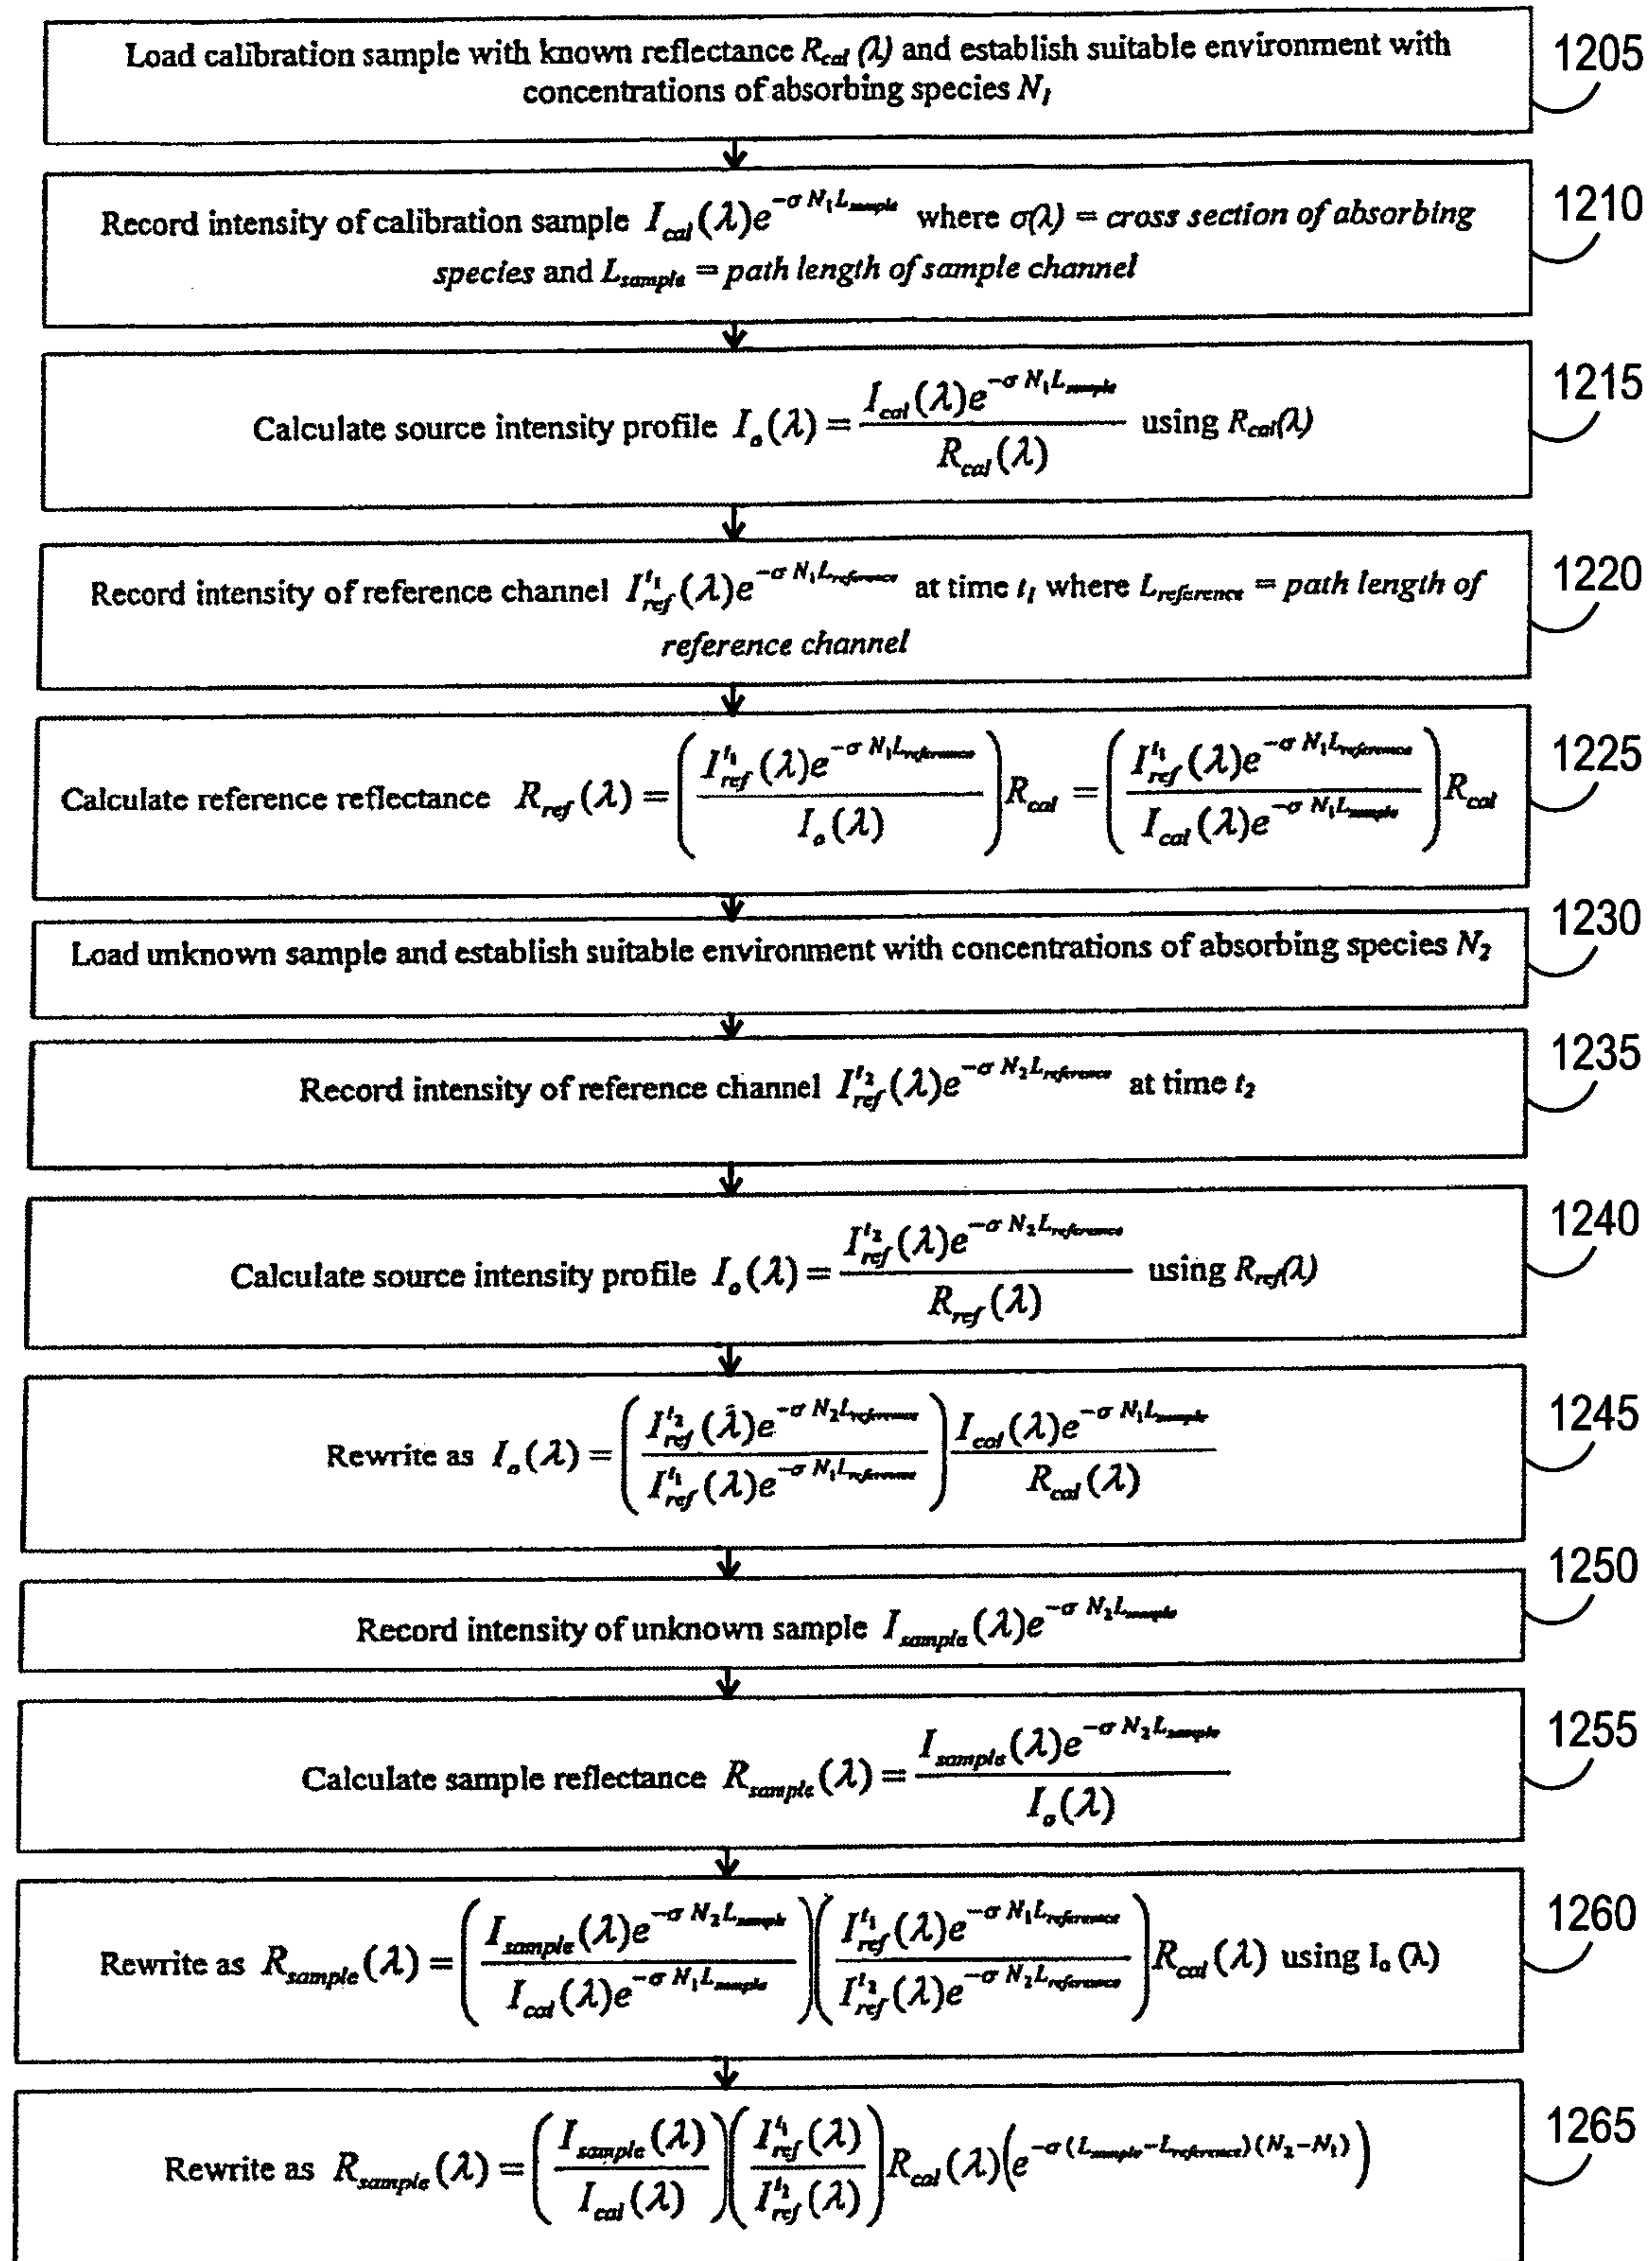 Load calibration sample with known reflectance R_cal (λ) and establish suitable environment with
concentrations of absorbing species N_1
1205
Record intensity of calibration sample I_cal(λ)e^{-σ N_1 L_sample} where σ(λ) = cross section of absorbing
species and L_sample = path length of sample channel
1210
Calculate source intensity profile I_o(λ) = \frac{I_cal(λ)e^{-σ N_1 L_sample}}{R_cal(λ)} using R_cal(λ)
1215
Record intensity of reference channel I_ref^{t_1}(λ)e^{-σ N_1 L_reference} at time t_1 where L_reference = path length of
reference channel
1220
Calculate reference reflectance R_ref(λ) = (\frac{I_ref^{t_1}(λ)e^{-σ N_1 L_reference}}{I_o(λ)})R_cal = (\frac{I_ref^{t_1}(λ)e^{-σ N_1 L_reference}}{I_cal(λ)e^{-σ N_1 L_sample}})R_cal
1225
Load unknown sample and establish suitable environment with concentrations of absorbing species N_2
1230
Record intensity of reference channel I_ref^{t_2}(λ)e^{-σ N_2 L_reference} at time t_2
1235
Calculate source intensity profile I_o(λ) = \frac{I_ref^{t_2}(λ)e^{-σ N_2 L_reference}}{R_ref(λ)} using R_ref(λ)
1240
Rewrite as I_o(λ) = (\frac{I_ref^{t_2}(λ)e^{-σ N_2 L_reference}}{I_ref^{t_1}(λ)e^{-σ N_1 L_reference}})\frac{I_cal(λ)e^{-σ N_1 L_sample}}{R_cal(λ)}
1245
Record intensity of unknown sample I_sample(λ)e^{-σ N_2 L_sample}
1250
Calculate sample reflectance R_sample(λ) = \frac{I_sample(λ)e^{-σ N_2 L_sample}}{I_o(λ)}
1255
Rewrite as R_sample(λ) = (\frac{I_sample(λ)e^{-σ N_2 L_sample}}{I_cal(λ)e^{-σ N_1 L_sample}})(\frac{I_ref^{t_1}(λ)e^{-σ N_1 L_reference}}{I_ref^{t_2}(λ)e^{-σ N_2 L_reference}})R_cal(λ) using I_o (λ)
1260
Rewrite as R_sample(λ) = (\frac{I_sample(λ)}{I_cal(λ)})(\frac{I_ref^{t_1}(λ)}{I_ref^{t_2}(λ)})R_cal(λ)(e^{-σ(L_sample-L_reference)(N_2-N_1)})
1265